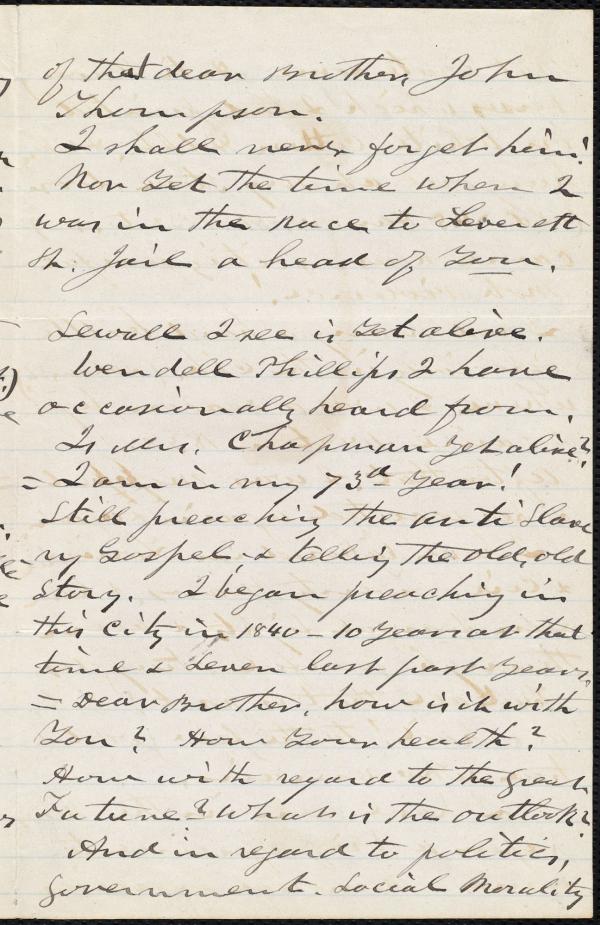 of that dear Brother, John
Thompson.
I shall never forget him!
Nor yet the time when I
was in the race to Leverett
St. Jail a head of You.
Sewall I see is yet alive.
Wendell Phillips I have
occasionally heard from.
Is Mrs. Chapman yet alive?
= I am in my 73d Year!
Still preaching the anti Slave
ry Gospel, & telling the old, old
Story. I began preaching in
this City in 1840 - 10 Years at that
time & Seven last past Years.
= Dear Brother, how is it with
You? How Your health?
How with regard to the great
Future? What is the outlook?
And in regard to politics,
government Social Morality